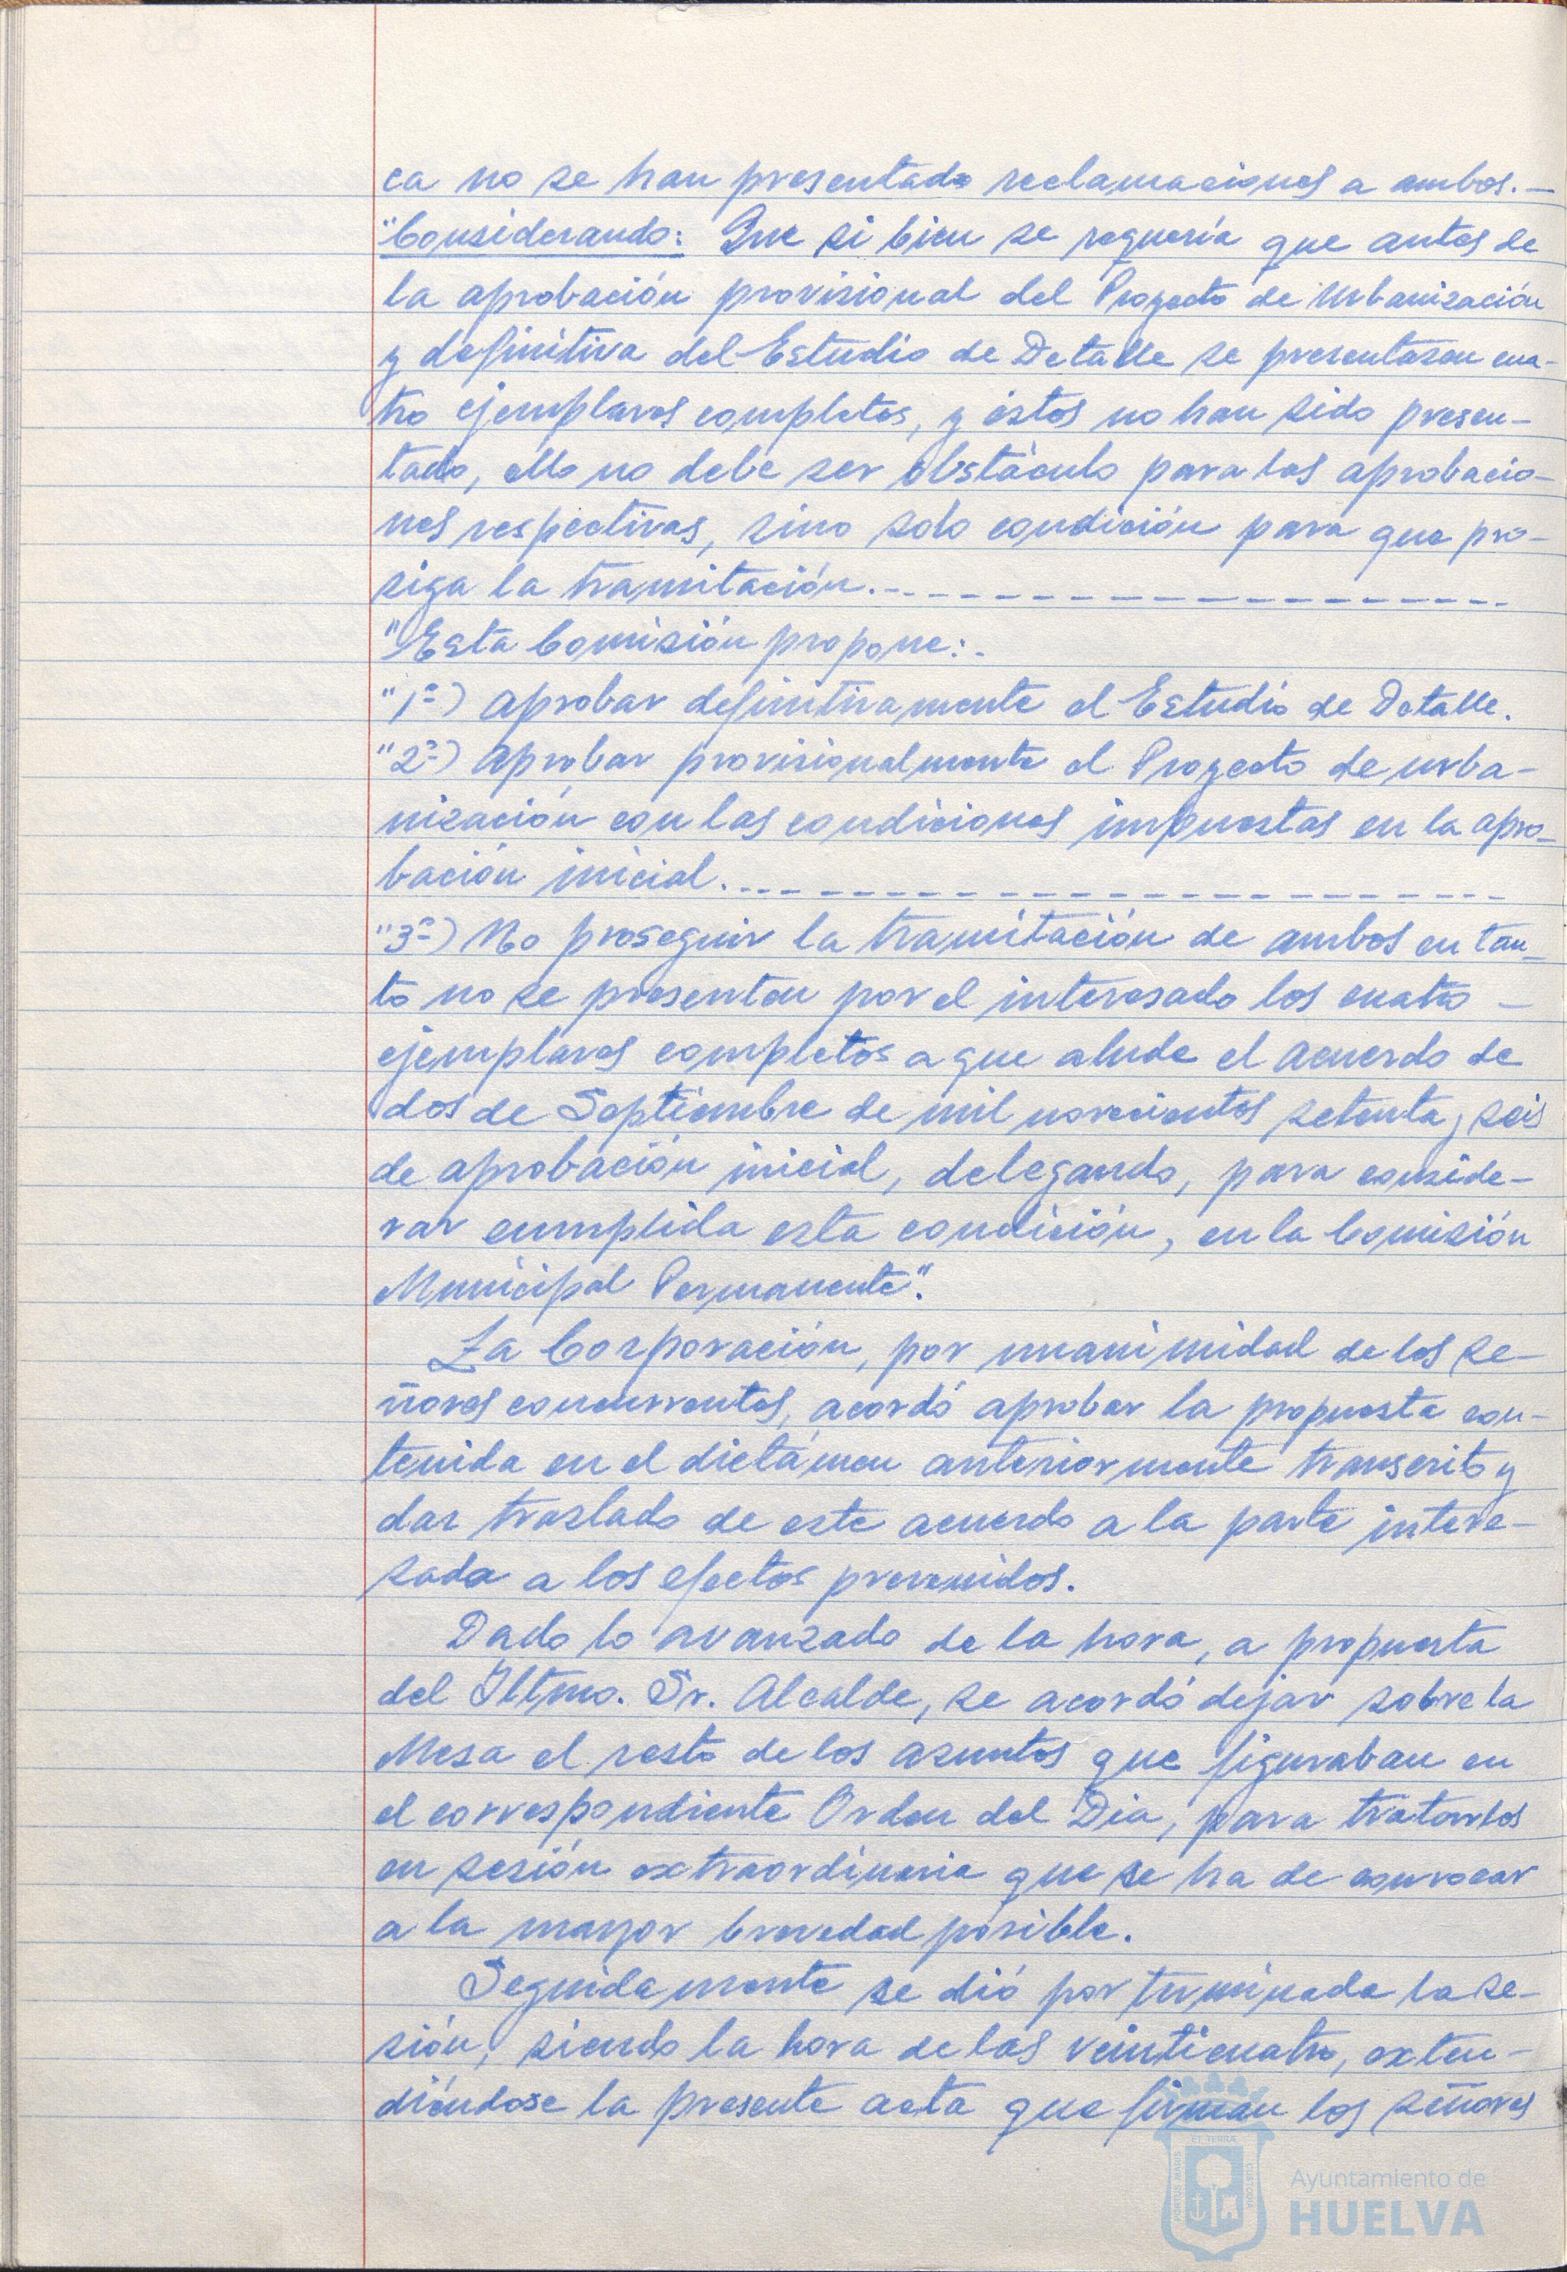 ca no se han presentado reclamaciones a ambos.—
"Considerando: Que si bien se requería que antes de
la aprobación provisional del Proyecto de Urbanización
y definitiva del Estudio de Detalle se presentasen cua-
tro ejemplares completos, y éstos no han sido presen-
tado, ello no debe ser obstáculo para las aprobacio-
nes respectivas, sino solo condición para que pro-
siga la tramitación.-----
"Esta Comisión propone:.
"1º-) Aprobar definitivamente el Estudio de Detalle.
"2º-) Aprobar provisionalmente el Proyecto de urba-
nización con las condiciones impuestas en la apro-
bación inicial.-----
"3º-) No proseguir la tramitación de ambos en tan-
to no se presenten por el interesado los cuatro —
ejemplares completos a que alude el acuerdo de
dos de Septiembre de mil novecientos setenta y seis
de aprobación inicial, delegando, para conside-
rar cumplida esta condición, en la Comisión
Municipal Permanente".
La Corporación, por unanimidad de los se-
ñores concurrentes, acordó aprobar la propuesta con-
tenida en el dictámen anteriormente transcrito y
dar traslado de este acuerdo a la parte intere-
sada a los efectos prevenidos.
Dado lo avanzado de la hora, a propuesta
del Iltmo. Sr. Alcalde, se acordó dejar sobre la
Mesa el resto de los asuntos que figuraban en
el correspondiente Orden del Dia, para tratarlos
en sesión extraordinaria que se ha de convocar
a la mayor brevedad posible.
Seguidamente se dió por terminada la se-
sión, siendo la hora de las veinticuatro, exten-
diéndose la presente acta que firman los señores
PORTUS MARIS
ET TERRÆ
CUSTODIA
Ayuntamiento de
HUELVA